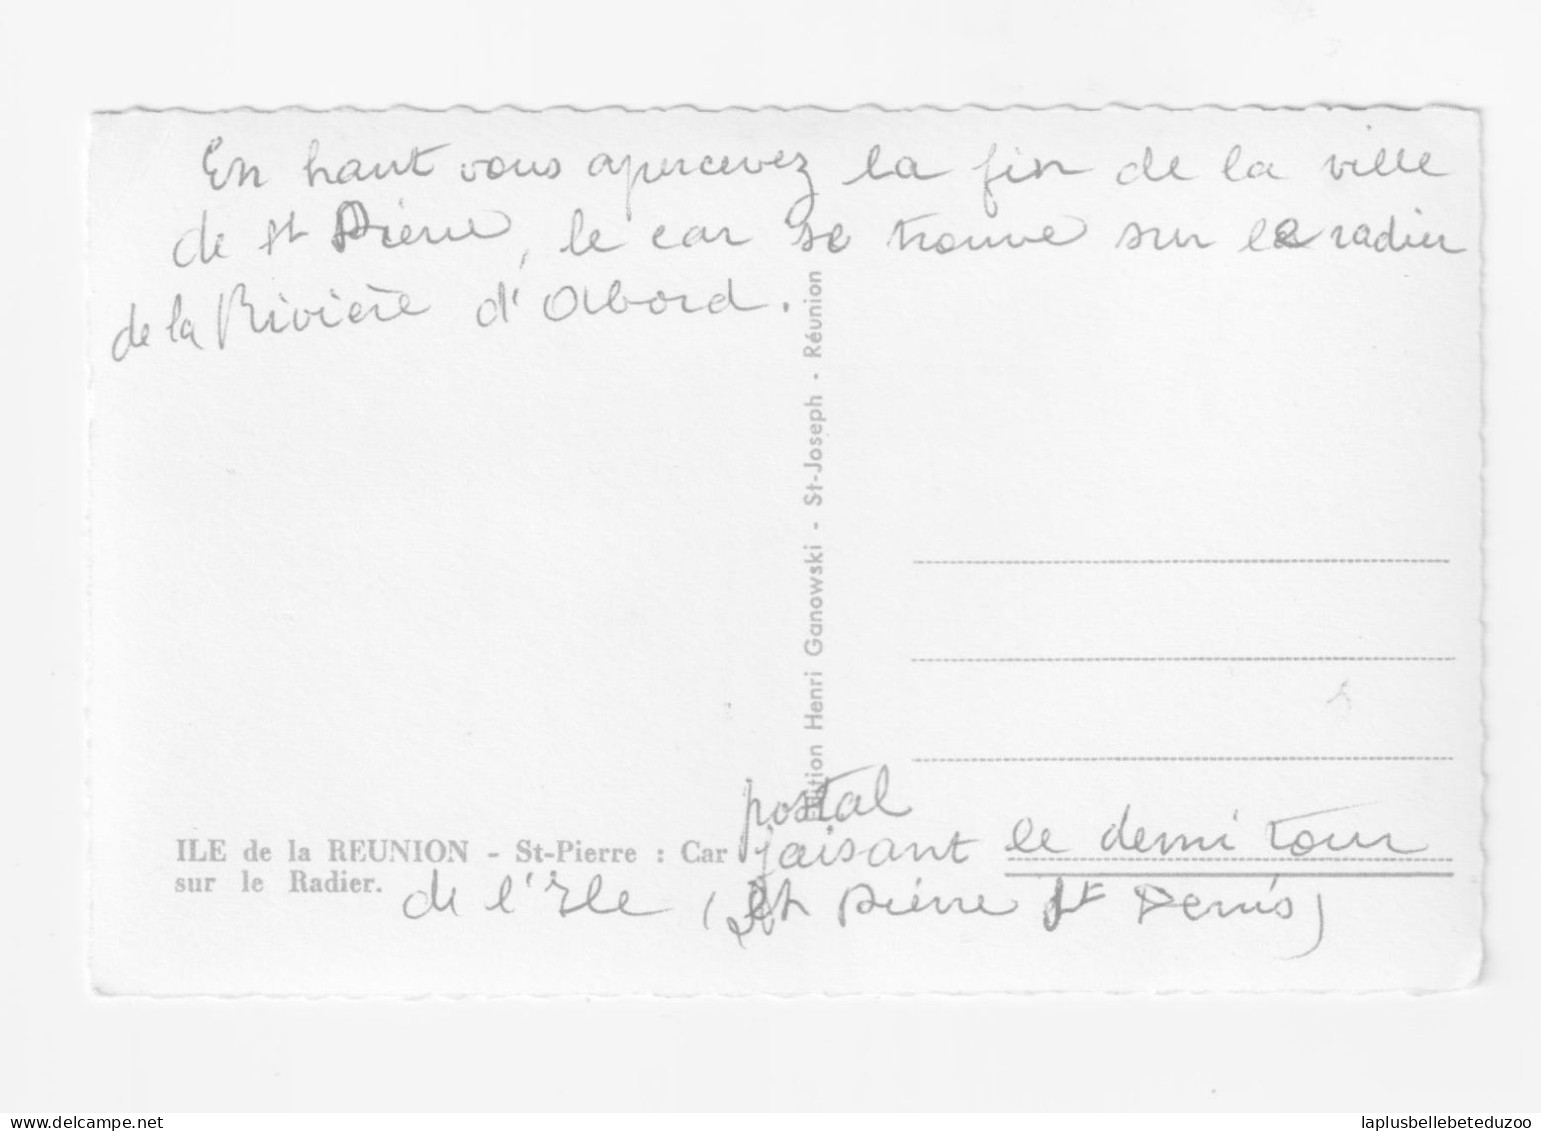 En haut vous apercevez la fin de la ville
de st Pierre, le car se trouve sur le radier
de la Rivière d'Abord.
Edition Henri Ganowski - St-Joseph - Réunion
postal
ILE de la REUNION - St-Pierre : Car faisant le demi tour
sur le Radier.
de l'Ile (St Pierre St Denis)
delcampe.net
laplusbellebeteduzoo